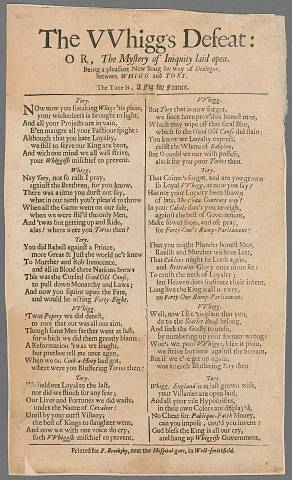 The VVhiggs Defeat:
OR, The Mystery of Iniquity laid open.
Being a pleasant New Song by way of Dialogue,
between WHIGG and TORY.
The Tune is, A Fig for France.
Tory.
NOw now you sneaking Whigs 'tis plain,
your wickedness is brought to light,
And all your Projects are in vain,
E'en maugre all your Factious spight:
Although that you hate Loyalty,
we still to serve our King are bent,
And with one mind we all will strive,
your Whiggish mischief to prevent.
Whigg.
Nay Tory, not so rash I pray,
against the Brethren, for you know,
There was a time you durst not say,
what in our teeth you'r pleas'd to throw
When all the Game went on our side,
when we were fill'd the only Men,
And 'twas but getting up and Ride,
alas! where were you Tories then?
Tory.
You did Rebell against a Prince,
more Great & Just the world ne'r knew
To Murther and Rob Innocence,
and all in blood three Nations brew
This was the Cursed Good Old Cause,
to pull down Monarchy and Laws;
And now you squint upon the Fate,
and would be acting Forty Eight.
VVhigg.
'Twas Popery we did detest,
to root that out was all our aim,
Though some Men farther went at last,
for which we did them greatly blame:
A Reformation 'twas we sought,
but prethee tell me once agen,
When we on Cock-a-Hoop had got,
where were you Blustering Tories then?
Tory.
We held our Loyal to the last,
nor did we flinch for any fear,
Our Lives and Fortunes we did waste,
under the Name of Cavalier:
Until by your curst Villany,
the best of Kings to slaughter went,
And now we with one voice do cry,
such VVhiggish mischief to prevent.
VVhigg.
But Tory that is now forgot,
we since have prov'd as honest men,
Which may wipe off that fatal Blot,
which so the Good Old Cause did stain:
You know we Loyally expresss,
resist the Whore of Babylon,
But O could we our wish possess,
alack for you poor Tories then.
Tory.
That Crime's forgot, and are you grown
so Loyal VVhigg, as now you say?
Has not your Loyalty been shown,
of late, The clean Contrary way?
In your Cabals don't you inveigh,
against the best of Government,
Make some of those, and use pray,
for Forty-One's Rump-Parliament?
That you might Plunder honest Men,
Ravish and Murther without Lett,
That Coblers might be Lords again,
and Brittains Glory once more set:
To crush the neck of Loyalty;
but Heaven does frustrate their intent,
Long live the King is all our cry,
no Forty-One Rump-Parliament.
VVhigg.
Well, now I see 'tis plain that you,
do to the Scarlet Beast belong,
And seek the Godly to undo,
by numbering up your former wrongs
We's we poor VVhiggs, I see it plain,
we strive but now against the Stream,
But if we e're get up again,
woe to each Blustering Tory then.
Tory.
Whigg, England is at last grown wise,
your Villanies are open laid,
And all your vile Hypocrisies,
in their own Colors are display'd,
No Cheat for Publique-Faith Money,
can you impose, could you invent?
God bless the King is all our cry,
and hang up Whiggish Government.
Printed for P. Brooksby, near the Hospital-gate, in West-smithfield.